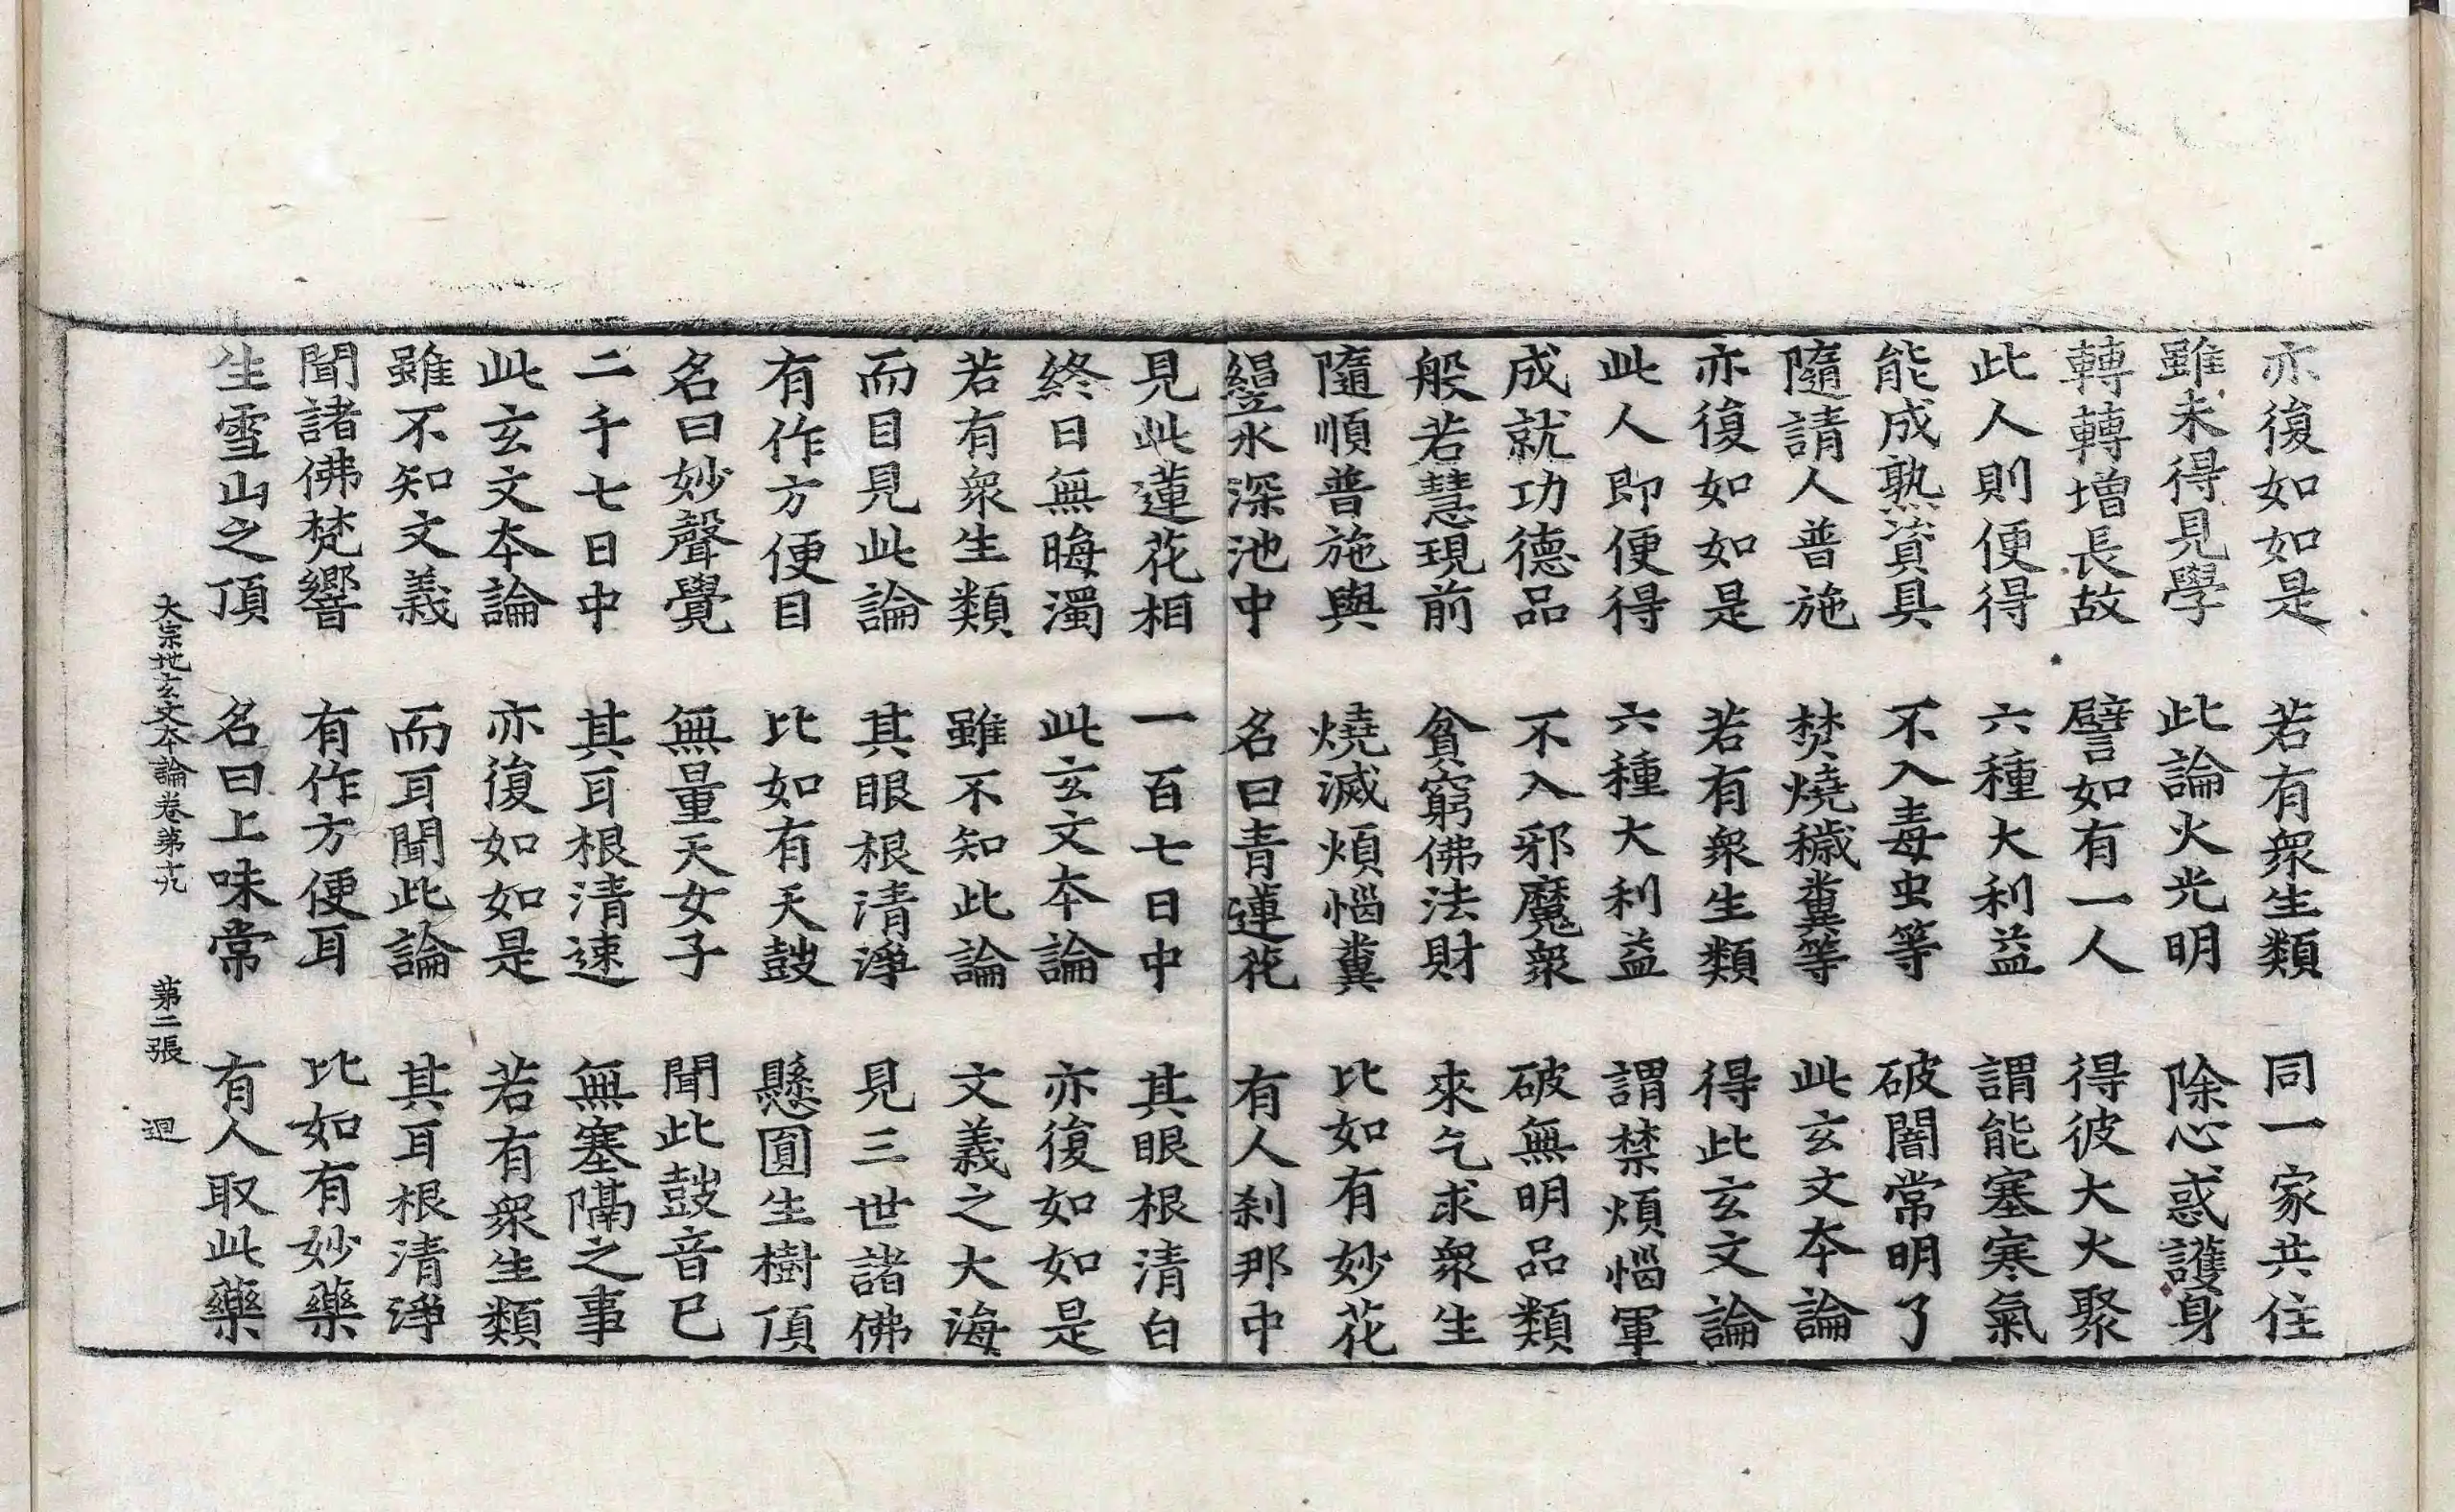 亦復如如是 若有衆生類 同一家共住
雖未得見學 此論火光明 除心惑護身
轉轉增長故 譬如有一人 得彼大火聚
此人則便得 六種大利益 謂能塞寒氣
能成熟資具 不入毒虫等 破闇常明了
隨請人普施 焚燒穢糞等 此玄文本論
亦復如如是 若有衆生類 得此玄文論
此人即便得 六種大利益 謂禁煩惱軍
成就功德品 不入邪魔衆 破無明品類
般若慧現前 貧窮佛法財 來乞求衆生
隨順普施與 燒滅煩惱糞 比如有妙花
水深池中 名曰青蓮花 有人刹那中
見此蓮花相 一百七日中 其眼根清白
終日無晦濁 此玄文本論 亦復如如是
若有衆生類 雖不知此論 文義之大海
而目見此論 其眼根清淨 見三世諸佛
有作方便目 比如有天鼓 懸圓生樹頂
名曰妙聲覺 無量天女子 聞此鼓音已
二千七日中 其耳根清速 無塞隔之事
此玄文本論 亦復如如是 若有衆生類
雖不知文義 而耳聞此論 其耳根清淨
聞諸佛梵響 有作方便耳 比如有妙藥
生雪山之頂 名曰上味常 有人取此藥
大宗地玄文本論卷第十九 第二張 迴